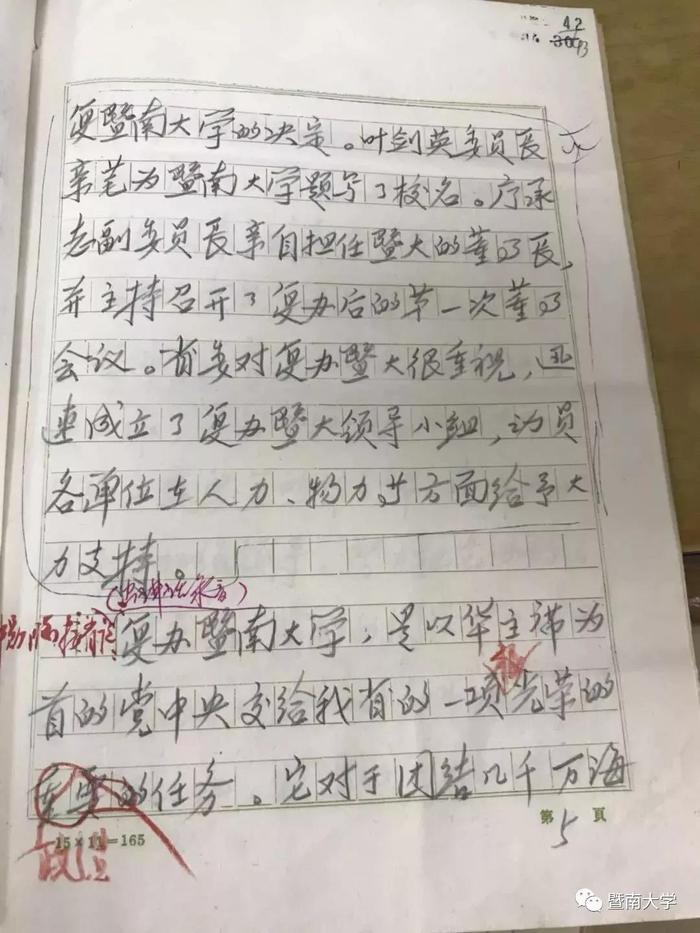 42
复暨南大学的决定。叶剑英委员长
亲笔为暨南大学题写了校名。廖承
志副委员长亲自担任暨大的董事长,
并主持召开了复办后的第一次董事
会议。省委对复办暨大很重视,迅
速成立了复办暨大领导小组,动员
各单位在人力、物力等方面给予大
力支持。
复办暨南大学,是以华主席为
首的党中央交给我省的一项光荣的
重要的任务。它对于团结几千万海
政治
15×11=165
第5頁
暨南大学